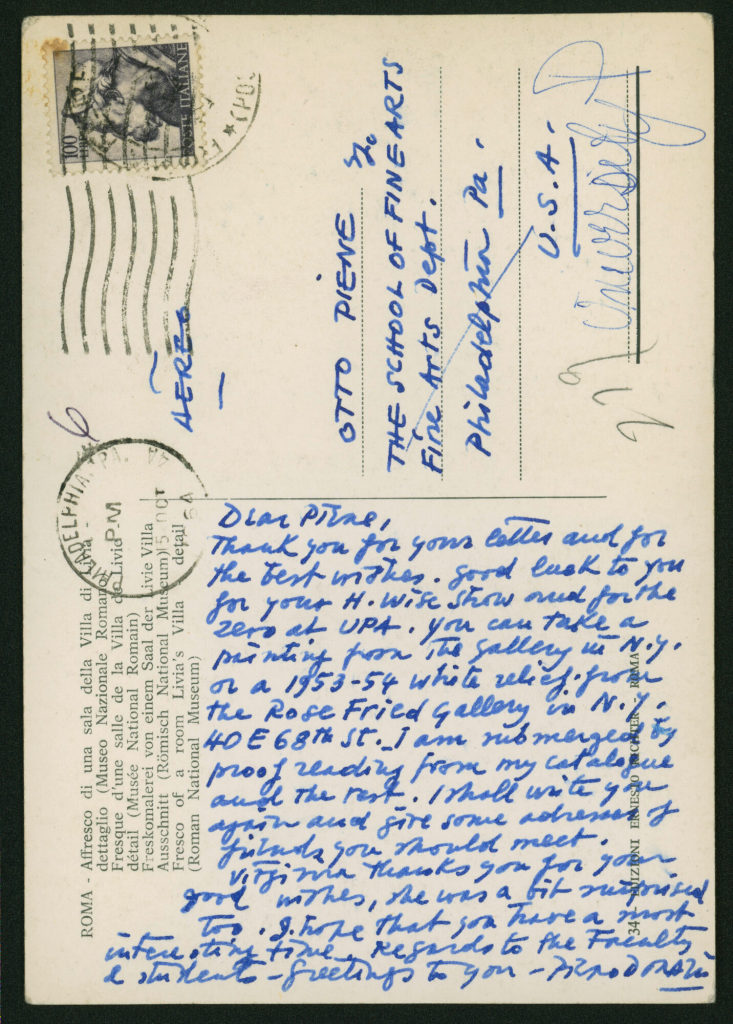 100
POSTE ITALIANE
AEREO
6
PHILADELPHIA, PA.
PM
5 OCT
64
OTTO PIENE
c/o
THE SCHOOL OF FINE ARTS
Fine Arts Dept.
Philadelphia Pa.
U.S.A.
University
ROMA - Affresco di una sala della Villa di
dettaglio (Museo Nazionale Romano)
Fresque d'une salle de la Villa de Livia
détail (Musée National Romain)
Freskomalerei von einem Saal der Livie Villa
Ausschnitt (Römisch National Museum)
Fresco of a room Livia's Villa detail
(Roman National Museum)
Dear Piene,
Thank you for your letter and for
the best wishes. good luck to you
for your H. Wise Show and for the
Zero at UPA. you can take a
painting from The gallery in N.Y.
or a 1953-54 white relief from
the Rose Fried Gallery in N.Y.
40 E 68th St. I am submerged by
proof reading from my catalogue
and the rest. I shall write you
again and give some adresses of
friends you should meet.
Virginia thanks you for your
good wishes, she was a bit surprised
too. I hope that you have a most
interesting time. Regards to the Faculty
& students - Greetings to you - PIERO DORAZIO
34
EDIZIONI ERNESTO RICHTER - ROMA